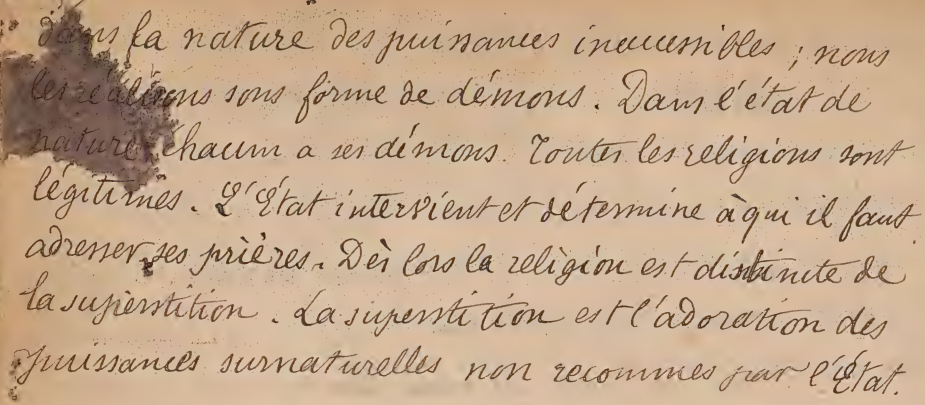 dans la nature des puissances inaccessibles ; nous
les réalisons sous forme de démons. Dans l'état de
nature chacun a ses démons. Toutes les religions sont
légitimes. L'État intervient et détermine à qui il faut
adresser ses prières. Dès lors la religion est distincte de
la superstition. La superstition est l'adoration des
puissances surnaturelles non reconnues par l'État.